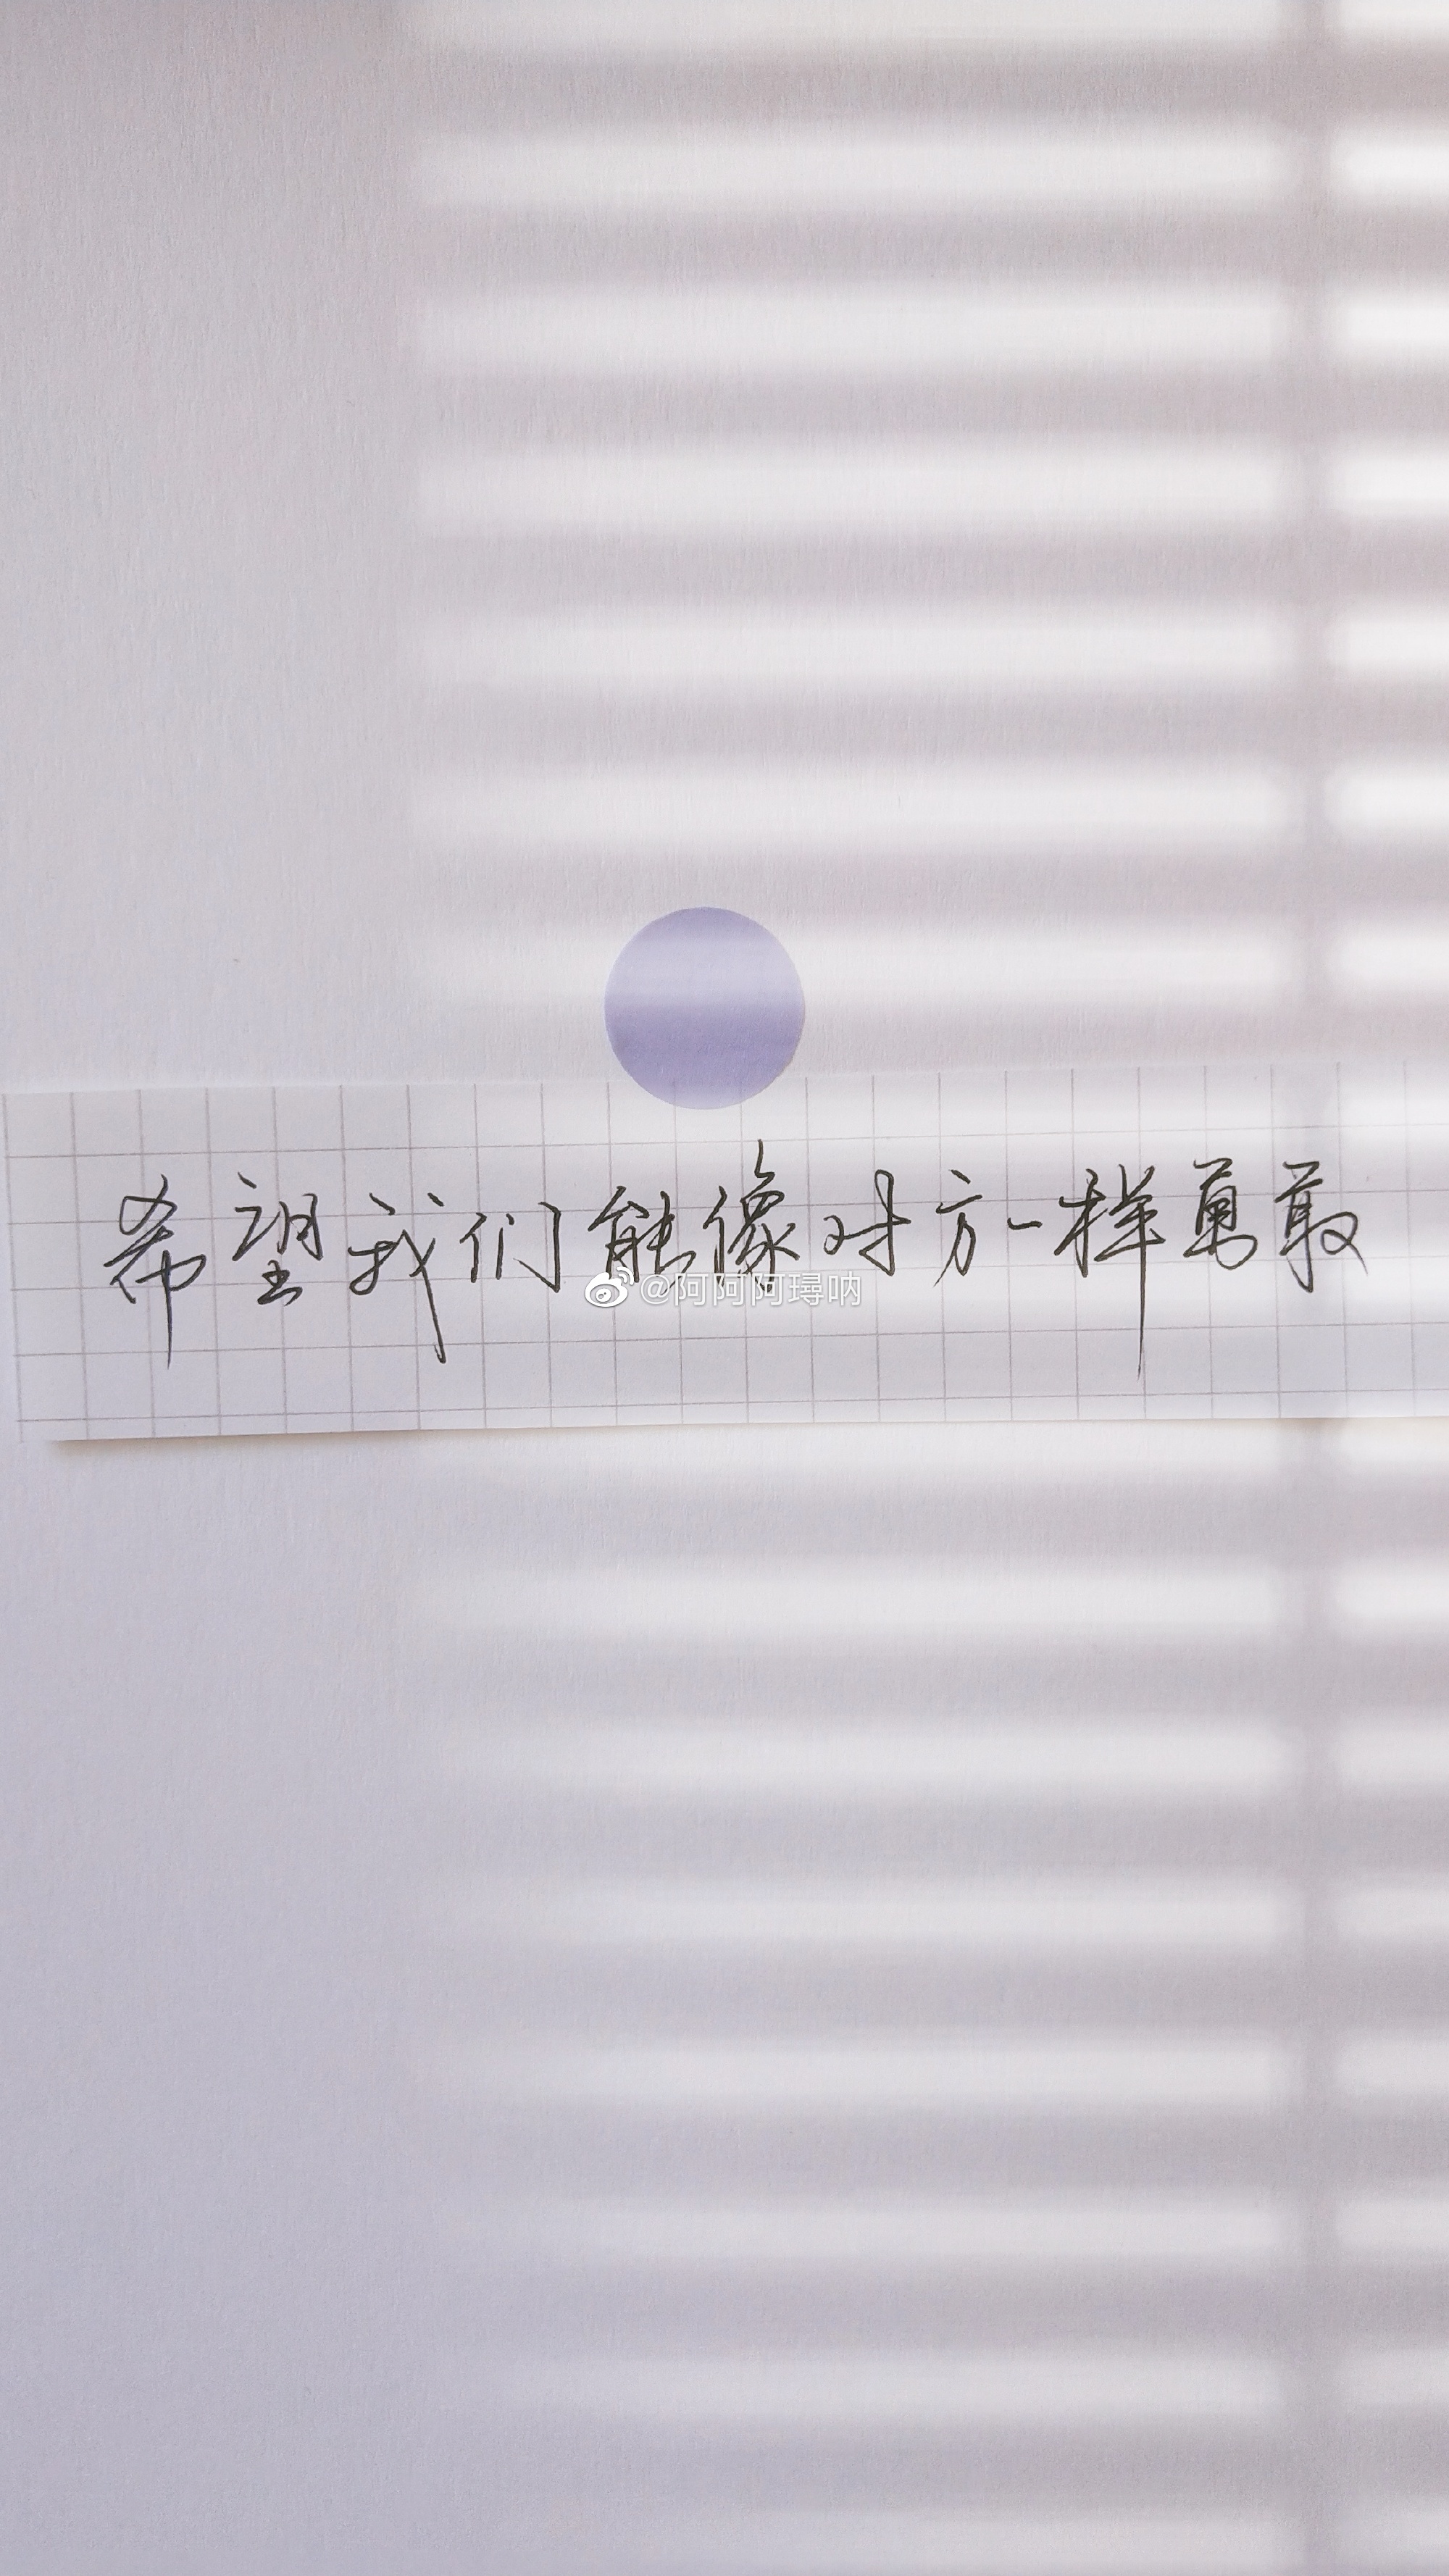 希望我们能像对方一样勇敢
@阿阿阿璕呐